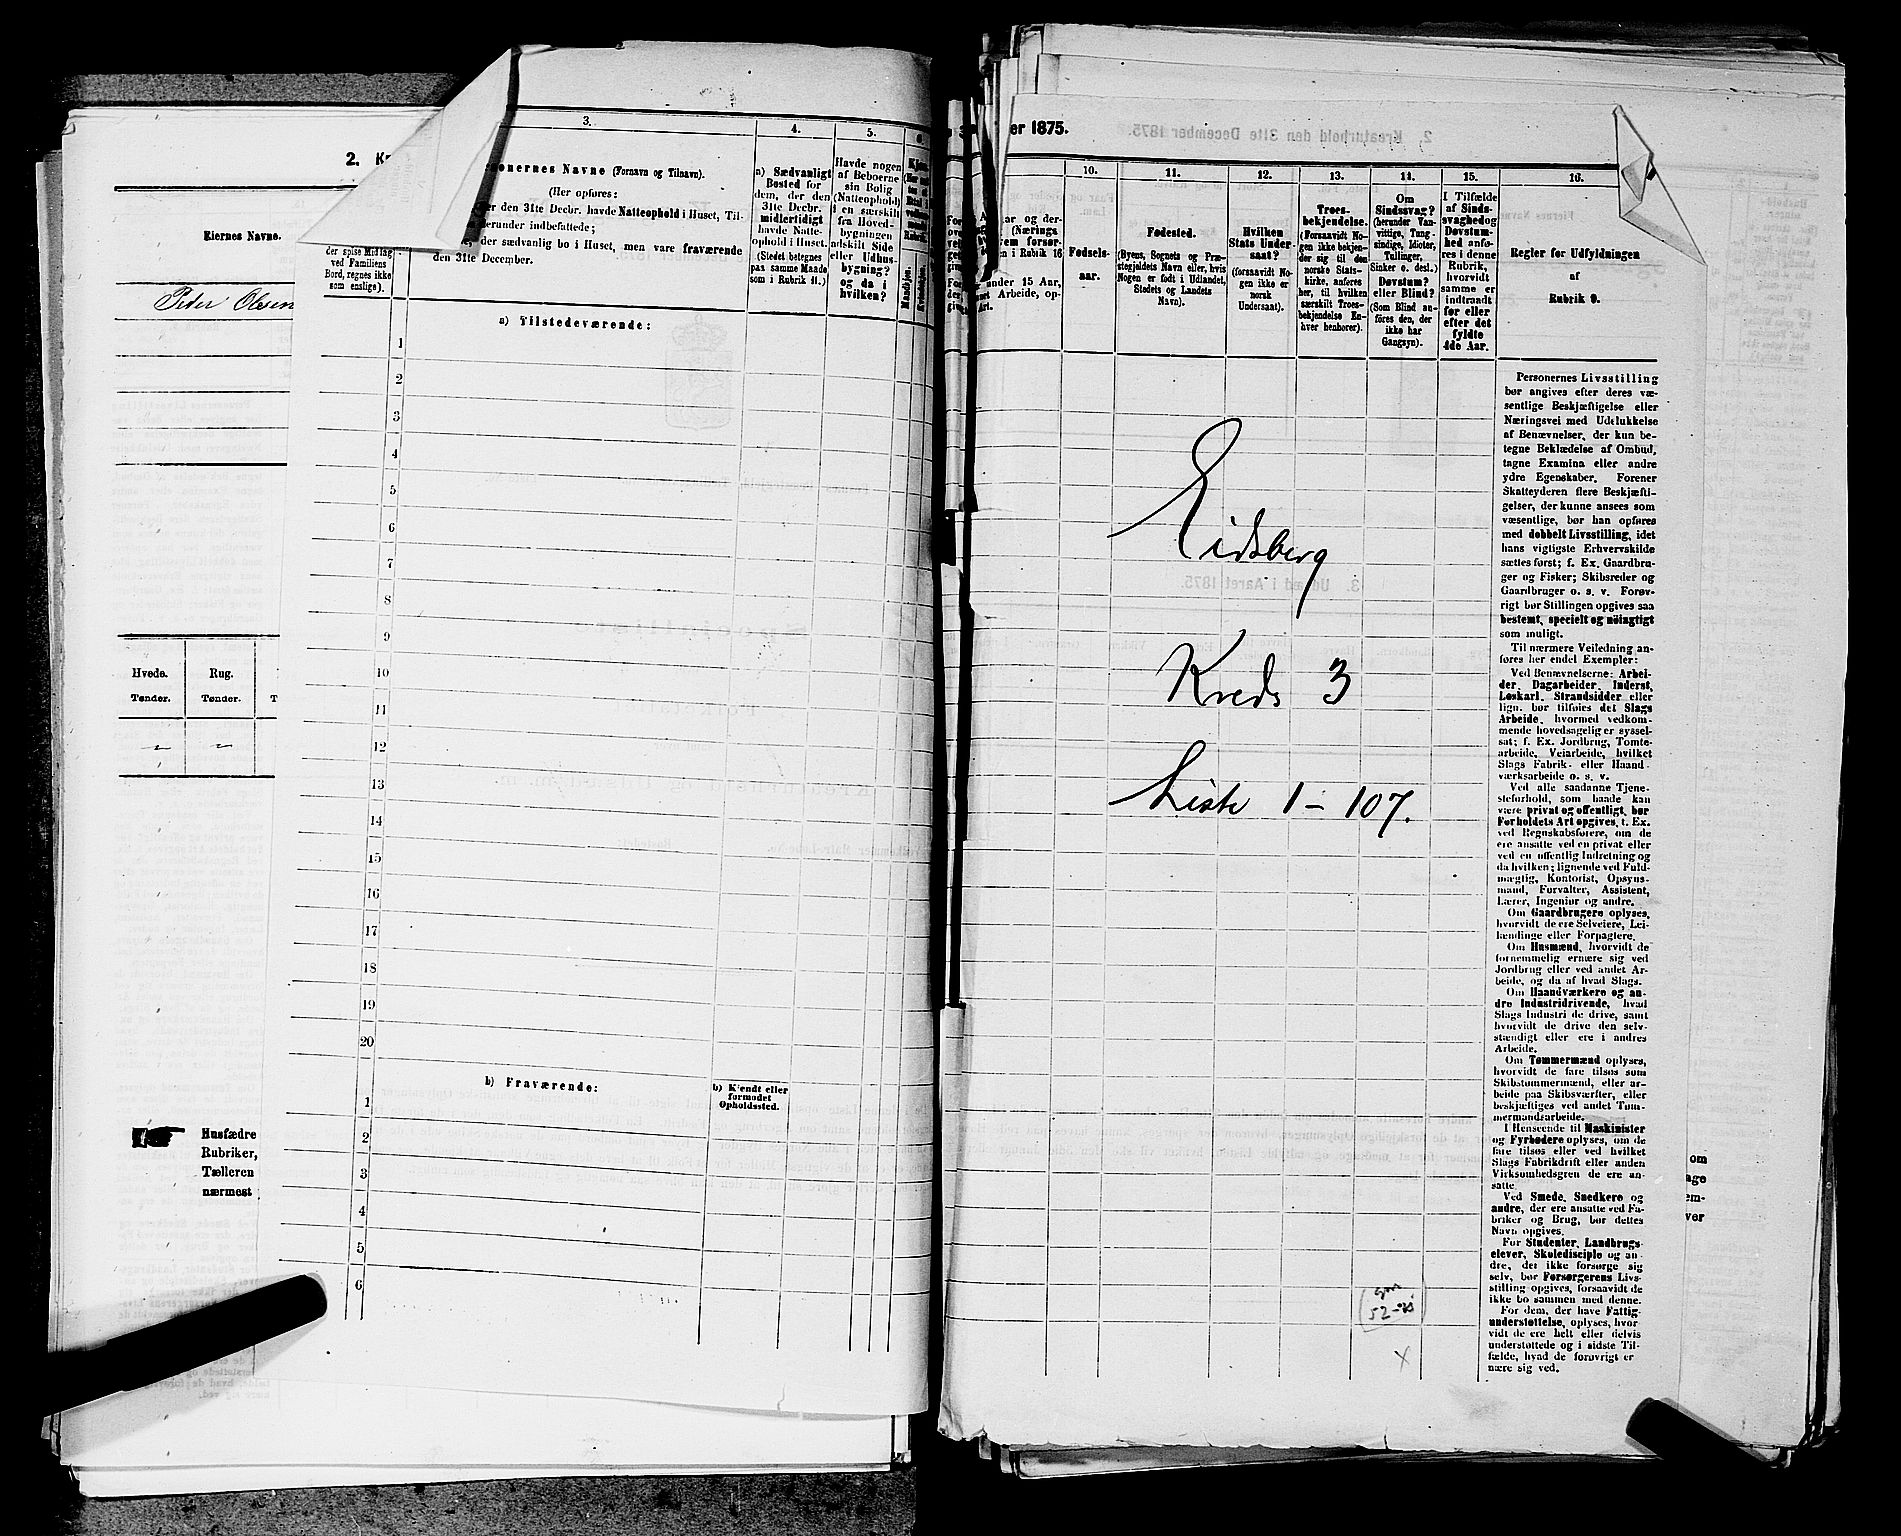 2. Kr
Eiernes Navne.
Peter Olesen
Hvede. Rug.
Tønder. Tønder. T
Husfædre
Rubriker,
Tælleren
nærmest
der spise Middag
ved Familiens
Bord, regnes ikke
som enslige).
3.
sonernes Navne (Fornavn og Tilnavn).
(Her opføres:
er den 31te Decbr. havde Natteophold i Huset, Til-
herunder indbefattede;
der sædvanlig bo i Huset, men vare fraværende
den 31te December.
4.
a) Sædvanligt
Bosted for
dem, der den
31te Decbr.
midlertidigt
havde Natte-
ophold i Huset.
(Stedet betegnes
paa samme Maade
som i Rubrik 11.)
5.
Havde nogen
af Beboerne
sin Bolig
(Natteophold)
i en særskilt
fra Hoved-
bygningen
adskilt Side
eller Udhus-
bygning?
og da i
hvilken?
6.
a) Tilstedeværende:
1
2
3
4
5
6
7
8
9
10
11
12
13
14
15
16
17
18
19
20
b) Fraværende:
b) Kjendt eller
formodet
Opholdssted.
1
2
3
4
5
6
er 1875.
aar og der-
(Nærings
rem forsør-
en i Rubrik 16
under 15 Aar,
t Arbeide, op-
10.
Fødsels-
aar.
11.
Fødested.
(Byens, Sognets og Præ-
stegjeldets Navn eller, hvis
Nogen er født i Udlandet,
Stedets og Landets
Navn).
12.
Hvilken
Stats Under-
saat?
(forsaavidt No-
gen ikke er
norsk
Undersaat).
13.
Troes-
bekjendelse.
(Forsaavidt No-
gen ikke bekjen-
der sig til den
norske Stats-
kirke, anføres
her, til hvilken
særskilt Troes-
bekjendelse En-
hver henhører).
14.
Om
Sindssvag?
(herunder Van-
vittige, Tung-
sindige, Idioter,
Tullinger,
Sinker o. desl.)
Døvstum?
eller Blind?
(Som Blind an-
føres den, der
ikke har
Gangsyn).
15.
I Tilfælde
af Sinds-
svaghed og
Døvstum-
hed anfø-
res i denne
Rubrik,
hvorvidt
samme er
indtraadt
før eller
efter det
fyldte
4de Aar.
16.
Regler for Udfyldningen
af
Rubrik 9.
Personernes Livsstilling
bør angives efter deres væ-
sentlige Beskjæftigelse eller
Næringsvei med Udelukkelse
af Benævnelser, der kun be-
tegne Beklædelse af Ombud,
tagne Examina eller andre
ydre Egenskaber. Forener
Skatteyderen flere Beskjæfti-
gelser, der kunne ansees som
væsentlige, bør han opføres
med dobbelt Livsstilling, idet
hans vigtigste Erhvervskilde
sættes først; f. Ex. Gaardbru-
ger og Fisker; Skibsreder og
Gaardbruger o. s. v. Forøv-
rigt bør Stillingen opgives saa
bestemt, specielt og nøiagtigt
som muligt.
Til nærmere Veiledning an-
føres her endel Exempler:
Ved Benævnelserne: Arbei-
der, Dagarbeider, Inderst,
Løskarl, Strandsidder eller
lign. bør tilføies det Slags
Arbeide, hvormed vedkom-
mende hovedsagelig er syssel-
sat; f. Ex. Jordbrug, Tomte-
arbeide, Veiarbeide, hvilket
Slags Fabrik- eller Haand-
værksarbeide o. s. v.
Ved alle saadanne Tjene-
steforhold, som baade kan
være privat og offentligt, bør
Forholdets Art opgives, t. Ex.
ved Regnskabsførere, om de
ere ansatte ved en privat eller
ved en offentlig Indretning og
da hvilken; lignende ved Fuld-
mægtig, Kontorist, Opsyns-
mand, Forvalter, Assistent,
Lærer, Ingeniør og andre.
Om Gaardbrugere oplyses,
hvorvidt de ere Selveiere, Lei-
lændinge eller Forpagtere.
Om Husmænd, hvorvidt de
fornemmelig ernære sig ved
Jordbrug eller ved andet Ar-
beide, og da af hvad Slags.
Om Haandværkere og an-
dre Industridrivende, hvad
Slags Industri de drive, samt
hvorvidt de drive den selv-
stændigt eller ere i andres
Arbeide.
Om Tømmermænd oplyses,
hvorvidt de fare tilsøs som
Skibstømmermænd, eller ar-
beide paa Skibsværfter, eller
beskjæftiges ved andet Tøm-
mermandsarbeide.
I Henseende til Maskinister
og Fyrbødere oplyses, om de
fare tilsøs eller ved hvilket
Slags Fabrikdrift eller anden
Virksomhedsgren de ere an-
satte.
Ved Smede, Snedkere og
andre, der ere ansatte ved Fa-
briker og Brug, bør dettes
Navn opgives.
For Studenter, Landbrugs-
elever, Skoledisciple og an-
dre, der ikke forsørge sig
selv, bør Forsørgerens Livs-
stilling opgives, forsaavidt de
ikke bo sammen med denne.
For dem, der have Fattig-
understøttelse, oplyses, hvor-
vidt de ere helt eller delvis
understøttede og i sidste Til-
fælde, hvad de forøvrigt er
nære sig ved.
Eidsberg
Kreds 3
Liste 1 – 107.
om
age
em-
ver